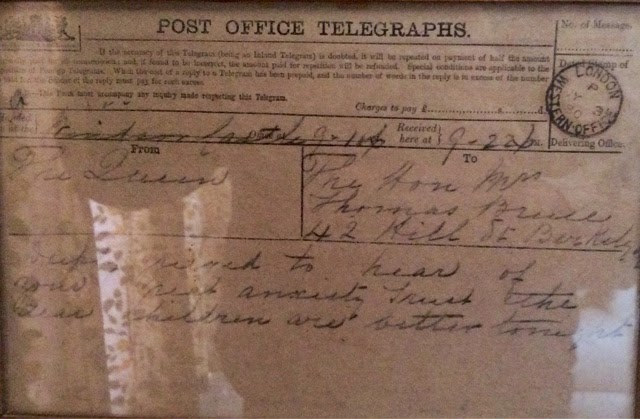 POST OFFICE TELEGRAPHS.
No. of Message.
If the accuracy of this Telegram (being an Inland Telegram) is doubted, it will be repeated on payment of half the amount
and, if found to be incorrect, the amount paid for repetition will be refunded. Special conditions are applicable to the
Telegrams. When the cost of a reply to a Telegram has been prepaid, and the number of words in the reply is in excess of the number
the reply must pay for such excess.
This Form must accompany any inquiry made respecting this Telegram.
Charges to pay £ s. d.
LONDON
WESTERN OFFICE
Windsor Castle 9-10
Received here at 9-22
Delivering Office.
From
To
The Queen
The Hon Mrs
Thomas Bruce
42 Hill St
grieved to hear of
your great anxiety Trust the
dear children are better tonight